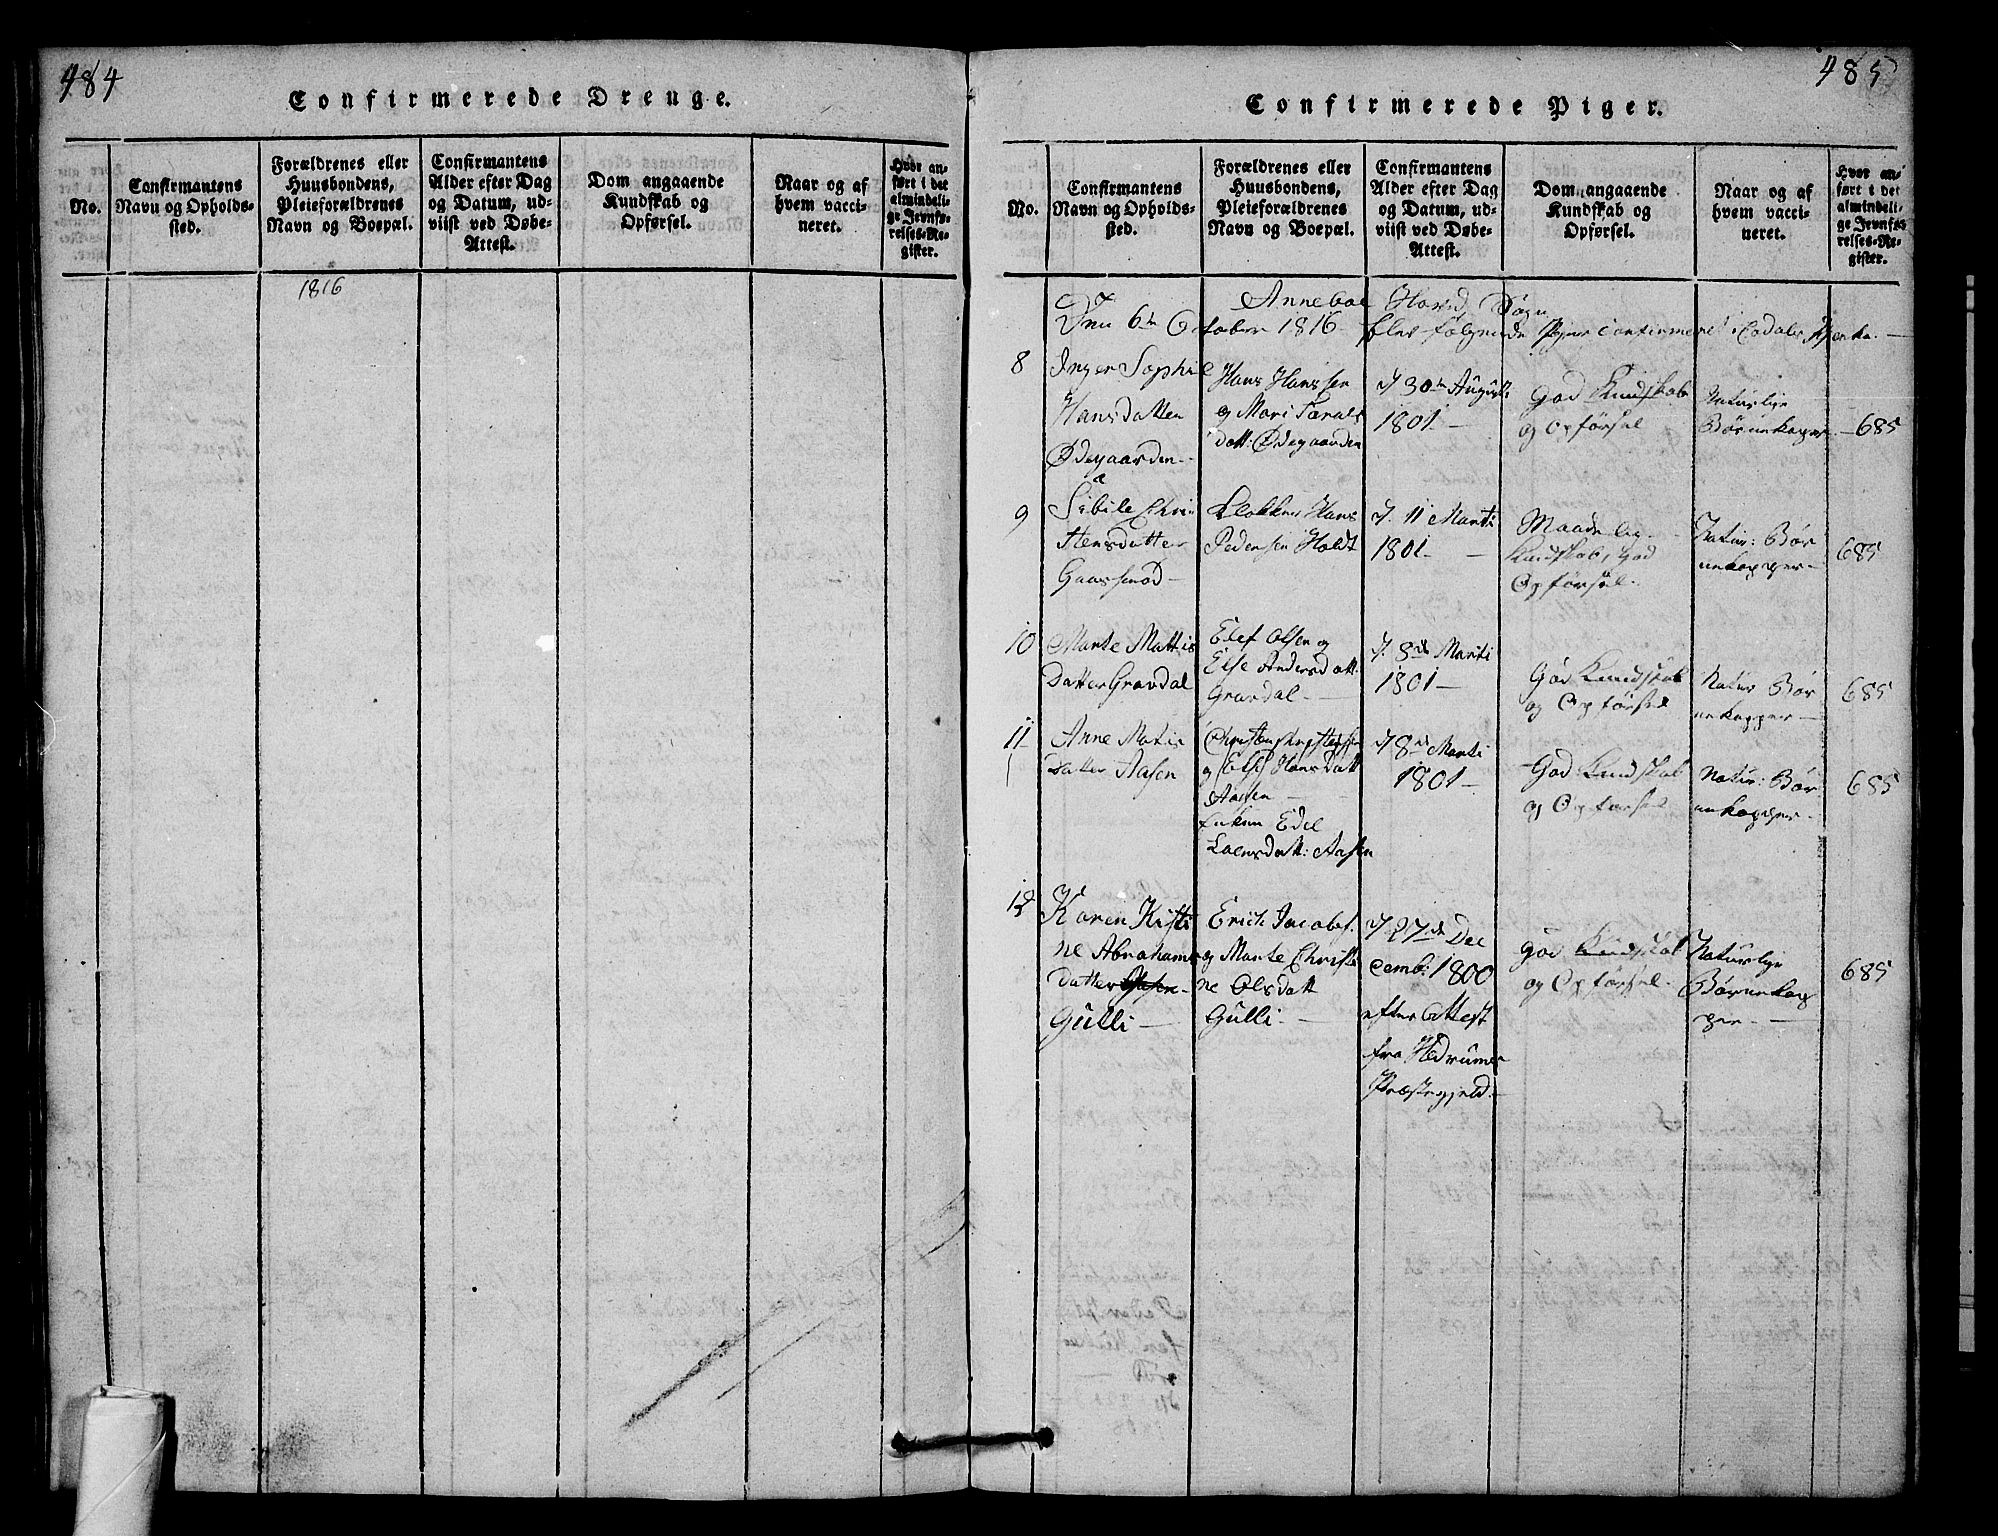 484
Confirmerede Drenge.
No.
Confirmantens
Navn og Opholds-
sted.
Forældrenes eller
Huusbondens,
Pleieforældrenes
Navn og Boepæl.
Confirmantens
Alder efter Dag
og Datum, ud-
viist ved Døbe-
Attest.
Dom angaaende
Kundskab og
Opførsel.
Naar og af
hvem vacci-
neret.
Hvor an-
ført i det
almindeli-
ge Jevnfø-
relses-Re-
gister.
1816
485
Confirmerede Piger.
No.
Confirmantens
Navn og Opholds-
sted.
Forældrenes eller
Huusbondens,
Pleieforældrenes
Navn og Boepæl.
Confirmantens
Alder efter Dag
og Datum, ud-
viist ved Døbe-
Attest.
Dom angaaende
Kundskab og
Opførsel.
Naar og af
hvem vacci-
neret.
Hvor an-
ført i det
almindeli-
ge Jevnfø-
relses-Re-
gister.
Anneboe Hoved Sogn
Den 6te October 1816 blev følgende Piger confirmeret i
8
Inger Sophie
Hansdatter
Ødegaarden
Hans Hanssen
og Mari Tarals
datt: Ødegaarden
d 30te August
1801.
God Kundskab
og Opførsel
Naturlige
Børnekopper
685
9
Sibile Chri
stensdatter
Gaasserød
Klokker Hans
Pedersen Holdt
d. 11 Marti
1801
Maadelig
Kundskab, god
Opførsel.
Natur: Bør
nekopper
685
10
Marte Mattis
Datter Gravdal
Elef Olsen og
Else Andersdatt:
Gravdal
d. 8de Marti
1801
God Kundskab
og Opførsel
Natur Bør
nekopper
685
11
Anne Matis
Datter Aasen
Christen
og Else Hansdatt
Aasen
Enken Edel
Laersdatt: Aasen
d 8de Marti
1801
God Kundskab
og Opførsel
Natur: Bør
nekopper.
685
12
Karen Kisti
ne Abrahams
Datter Aasen
Gulli
Erich Jacobs.
og Marte Christi
ne Olsdatt
Gulli.
d 27de De
cemb: 1800
efter Attest
fra Hedrums
Præstegjeld.
god Kundskab
og Opførsel.
Naturlige
Børnekop
per
685